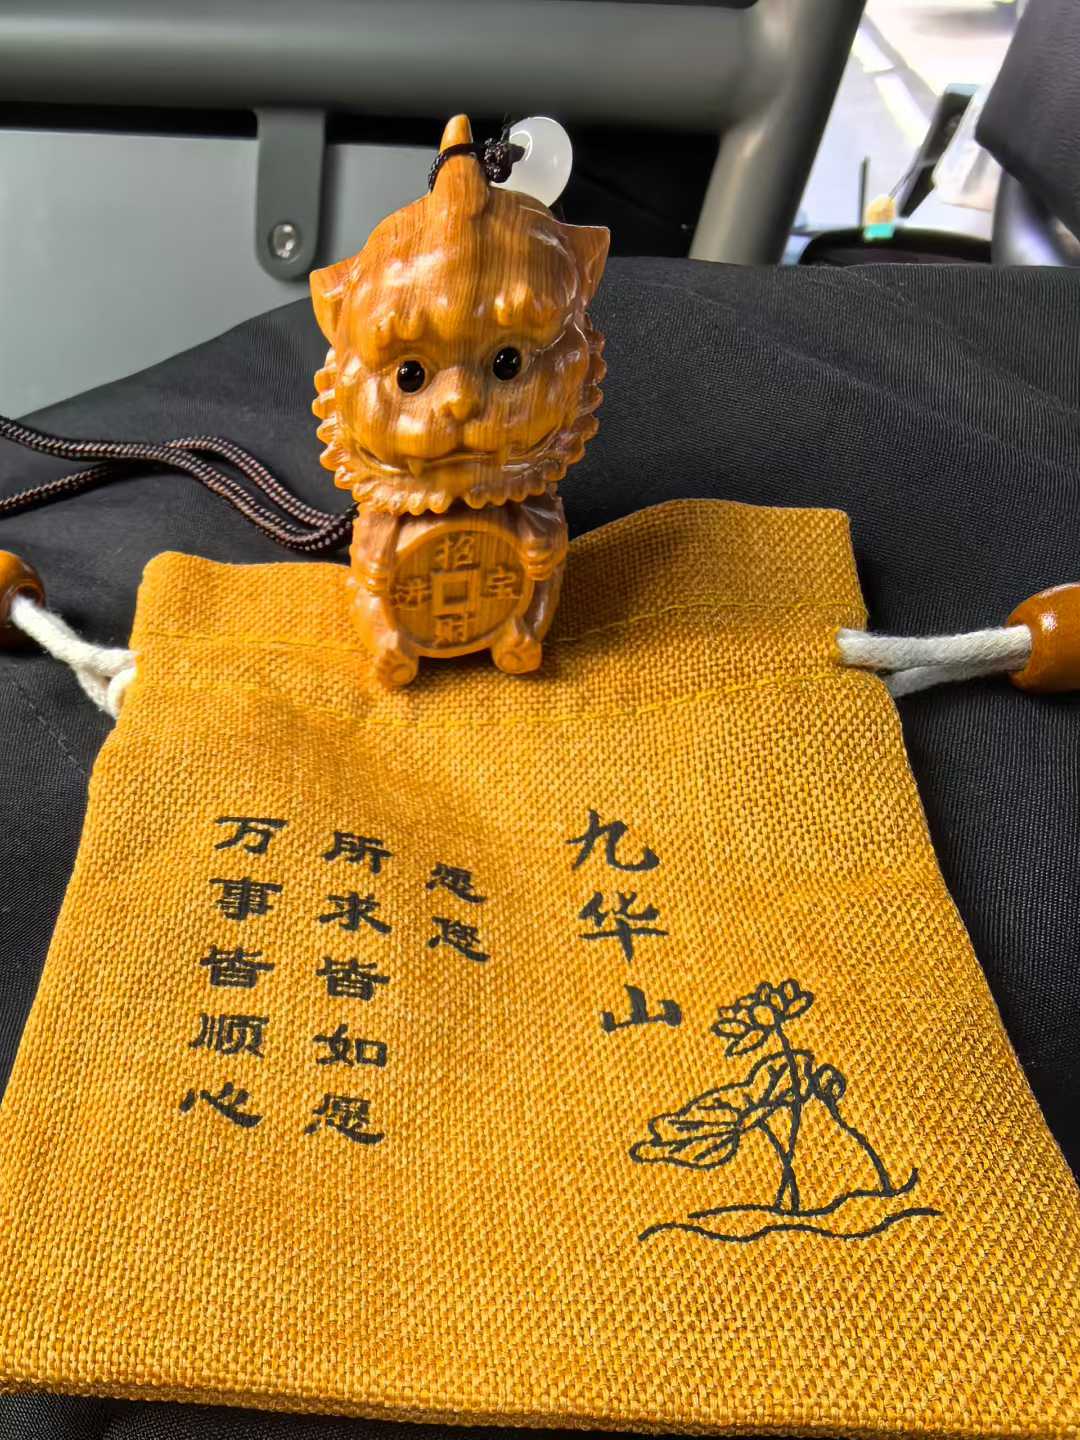 招财进宝
九华山
愿您
所求皆如愿
万事皆顺心